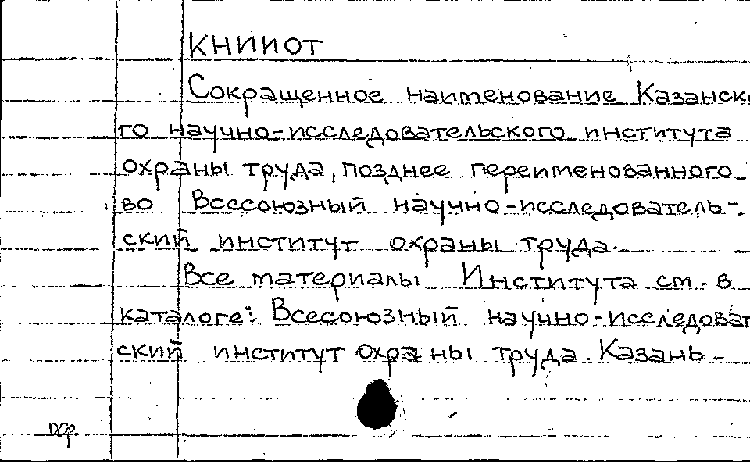 КНИИОТ
Сокращенное наименование Казанск
го научно-исследовательского института
охраны труда, позднее переименованного
во Всесоюзный научно-исследователь-
ский институт охраны труда.
Все материалы Института см. в
каталоге: Всесоюзный научно-исследоват
ский институт охраны труда. Казань.